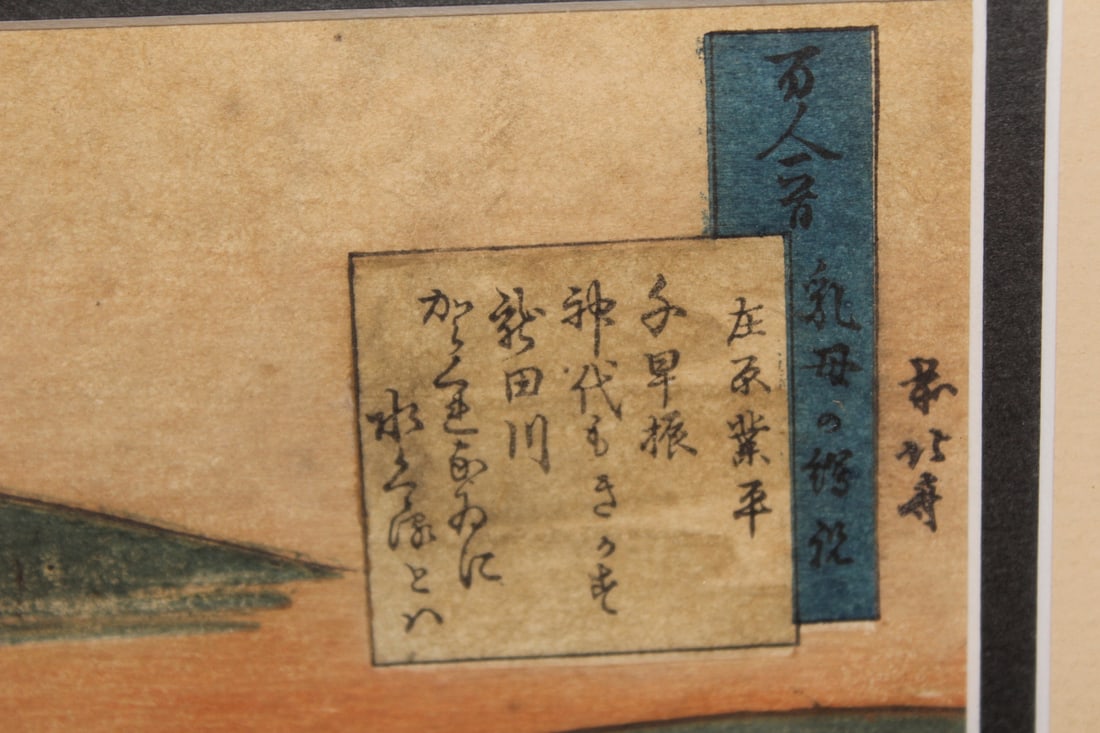 百人一首 乳母か繪説
前北斎
在原業平
千早振
神代もきかす
龍田川
からくれなゐに
水くゝるとハ